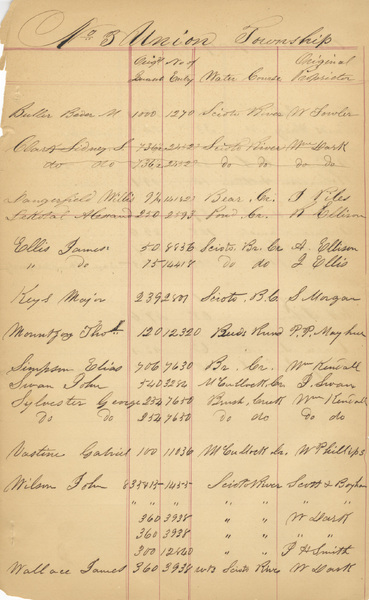 No 3 Union Township
Orig'l No of Original
Survey Entry Water Course Proprietor
Butler 1000 1270 Scioto River W Fowler
Clark Sidney S 736⅔ Scioto River Wm Dark
do do 736⅔ do do do do
Dangerfield Willis Bear Cr. J Piles
250 2593 Pond Cr. N Ellison
Ellis James 50 8836 Scioto Br. Cr. A. Ellison
" do 75 14418 do do J Ellis
Keys Major 239 Scioto B.C. S. Morgan
Mountjoy Thos 120 12320 Run P. P. Mayhew
Simpson Elias 706 7630 Br. Cr. Wm Kendall
Swan John 540 McCullock Cr. J. Swan
Sylvester George 254 7650 Brush Creek Wm Kendall
Do do 254 7650 do do do do
Vastine Gabriel 100 11036 McCullock Cr. W Phillips
Wilson John Scioto River Scott &
" " " "
360 3938 " " W Dark
360 3938 " " "
300 " " J H Smith
Wallace James 360 3938 Scioto River W Dark